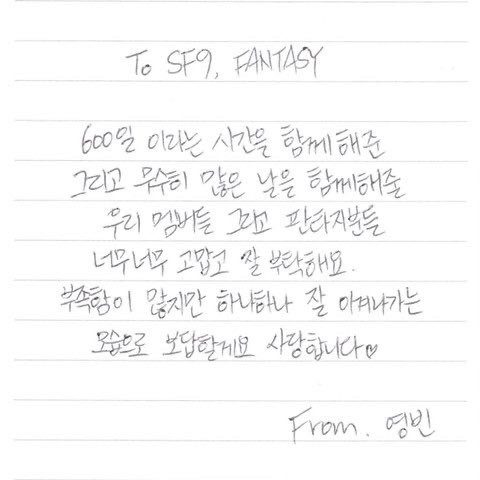 To SF9, FANTASY
600일 이라는 시간을 함께해준
그리고 무수히 많은 날을 함께해줄
우리 멤버들 그리고 판타지분들
너무너무 고맙고 잘 부탁해요.
부족함이 많지만 하나하나 잘 이겨나가는
모습으로 보답할게요 사랑합니다♡
From. 영빈